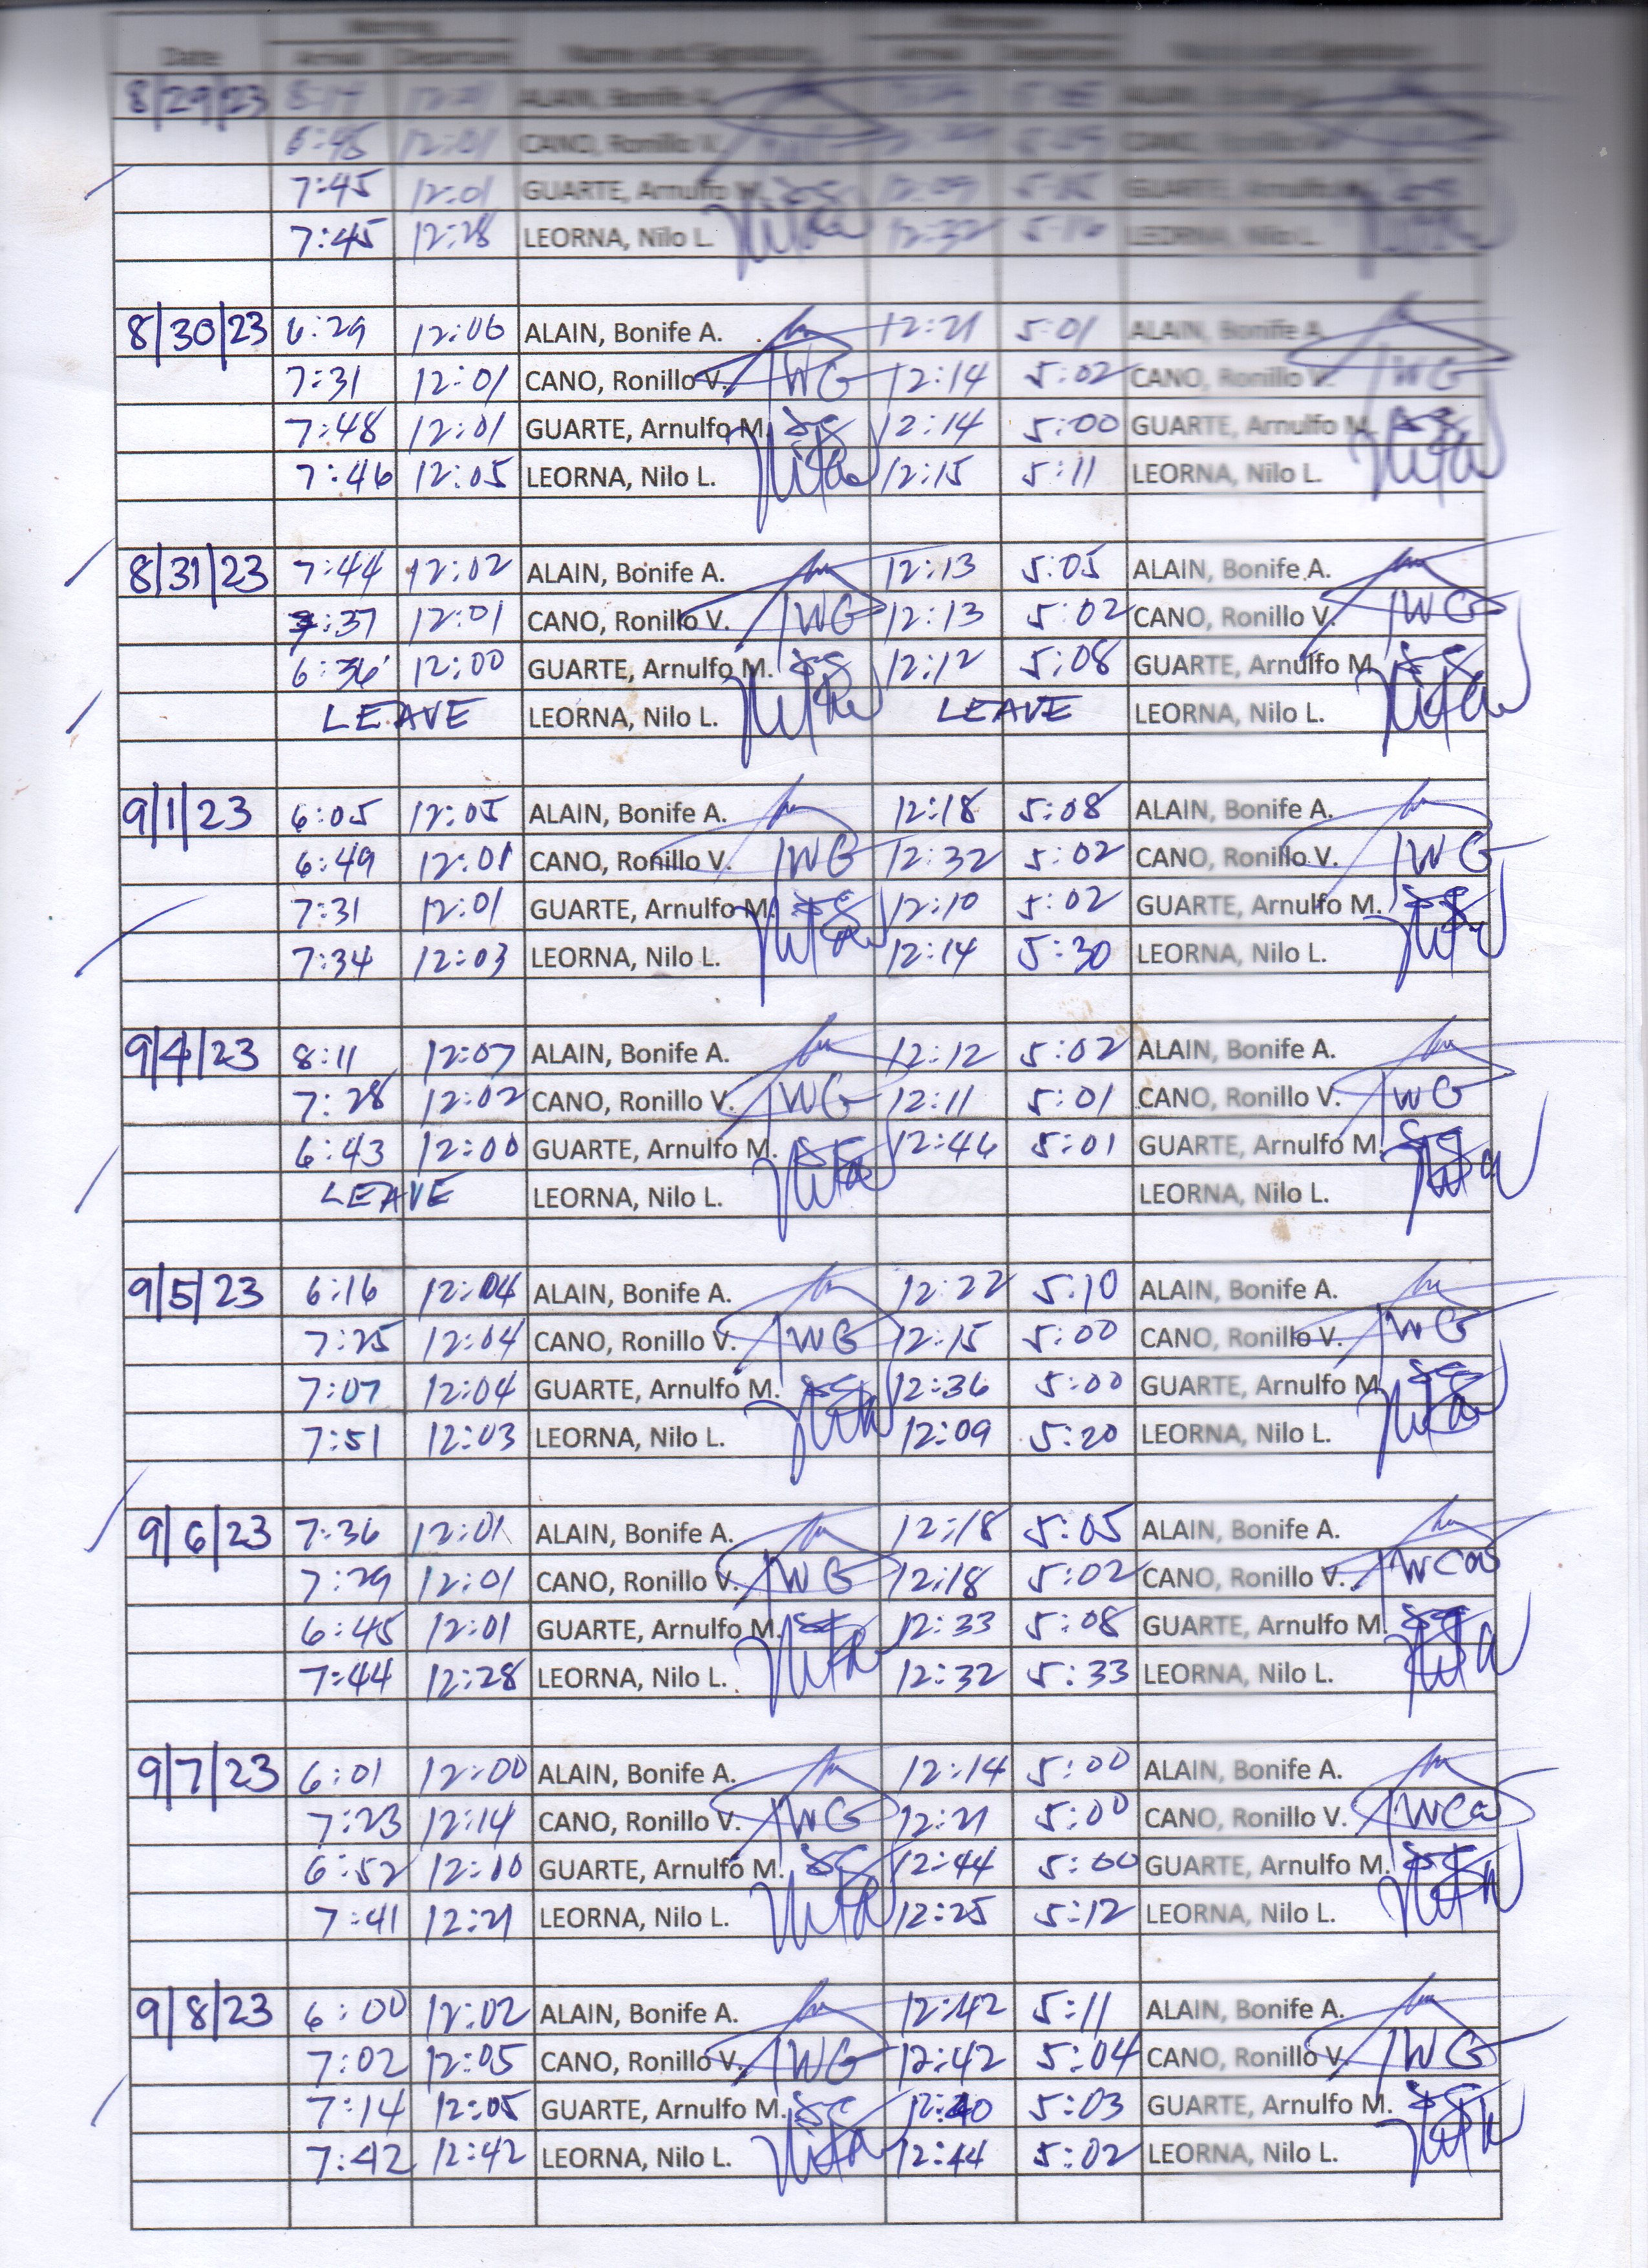 Date Arrival Departure Name and Signature Arrival Departure Name and Signature
8/29/23 ALAIN, Bonife A. ALAIN,
6:45 12:01 CANO, Ronillo V. CANO,
7:45 12:01 GUARTE, Arnulfo M. 12:09 GUARTE, Arnulfo M.
7:45 12:28 LEORNA, Nilo L. 12:32 5:16 LEORNA, Nilo L.
8/30/23 6:29 12:06 ALAIN, Bonife A. 12:21 5:01 ALAIN, Bonife A.
7:31 12:01 CANO, Ronillo V. 12:14 5:02 CANO, Ronillo V.
7:48 12:01 GUARTE, Arnulfo M. 12:14 5:00 GUARTE, Arnulfo M.
7:46 12:05 LEORNA, Nilo L. 12:15 5:11 LEORNA, Nilo L.
8/31/23 7:44 12:02 ALAIN, Bonife A. 12:13 5:05 ALAIN, Bonife A.
7:37 12:01 CANO, Ronillo V. 12:13 5:02 CANO, Ronillo V.
6:36 12:00 GUARTE, Arnulfo M. 12:12 5:08 GUARTE, Arnulfo M.
LEAVE LEORNA, Nilo L. LEAVE LEORNA, Nilo L.
9/1/23 6:05 12:05 ALAIN, Bonife A. 12:18 5:08 ALAIN, Bonife A.
6:49 12:01 CANO, Ronillo V. 12:32 5:02 CANO, Ronillo V.
7:31 12:01 GUARTE, Arnulfo M. 12:10 5:02 GUARTE, Arnulfo M.
7:34 12:03 LEORNA, Nilo L. 12:14 5:30 LEORNA, Nilo L.
9/4/23 8:11 12:07 ALAIN, Bonife A. 12:12 5:02 ALAIN, Bonife A.
7:28 12:02 CANO, Ronillo V. 12:11 5:01 CANO, Ronillo V.
6:43 12:00 GUARTE, Arnulfo M. 12:46 5:01 GUARTE, Arnulfo M.
LEAVE LEORNA, Nilo L. LEORNA, Nilo L.
9/5/23 6:16 12:04 ALAIN, Bonife A. 12:22 5:10 ALAIN, Bonife A.
7:25 12:04 CANO, Ronillo V. 12:15 5:00 CANO, Ronillo V.
7:07 12:04 GUARTE, Arnulfo M. 12:36 5:00 GUARTE, Arnulfo M.
7:51 12:03 LEORNA, Nilo L. 12:09 5:20 LEORNA, Nilo L.
9/6/23 7:36 12:01 ALAIN, Bonife A. 12:18 5:05 ALAIN, Bonife A.
7:29 12:01 CANO, Ronillo V. 12:18 5:02 CANO, Ronillo V.
6:45 12:01 GUARTE, Arnulfo M. 12:33 5:08 GUARTE, Arnulfo M.
7:44 12:28 LEORNA, Nilo L. 12:32 5:33 LEORNA, Nilo L.
9/7/23 6:01 12:00 ALAIN, Bonife A. 12:14 5:00 ALAIN, Bonife A.
7:23 12:14 CANO, Ronillo V. 12:21 5:00 CANO, Ronillo V.
6:52 12:10 GUARTE, Arnulfo M. 12:44 5:00 GUARTE, Arnulfo M.
7:41 12:21 LEORNA, Nilo L. 12:25 5:12 LEORNA, Nilo L.
9/8/23 6:00 12:02 ALAIN, Bonife A. 12:42 5:11 ALAIN, Bonife A.
7:02 12:05 CANO, Ronillo V. 12:42 5:04 CANO, Ronillo V.
7:14 12:05 GUARTE, Arnulfo M. 12:40 5:03 GUARTE, Arnulfo M.
7:42 12:42 LEORNA, Nilo L. 12:44 5:02 LEORNA, Nilo L.